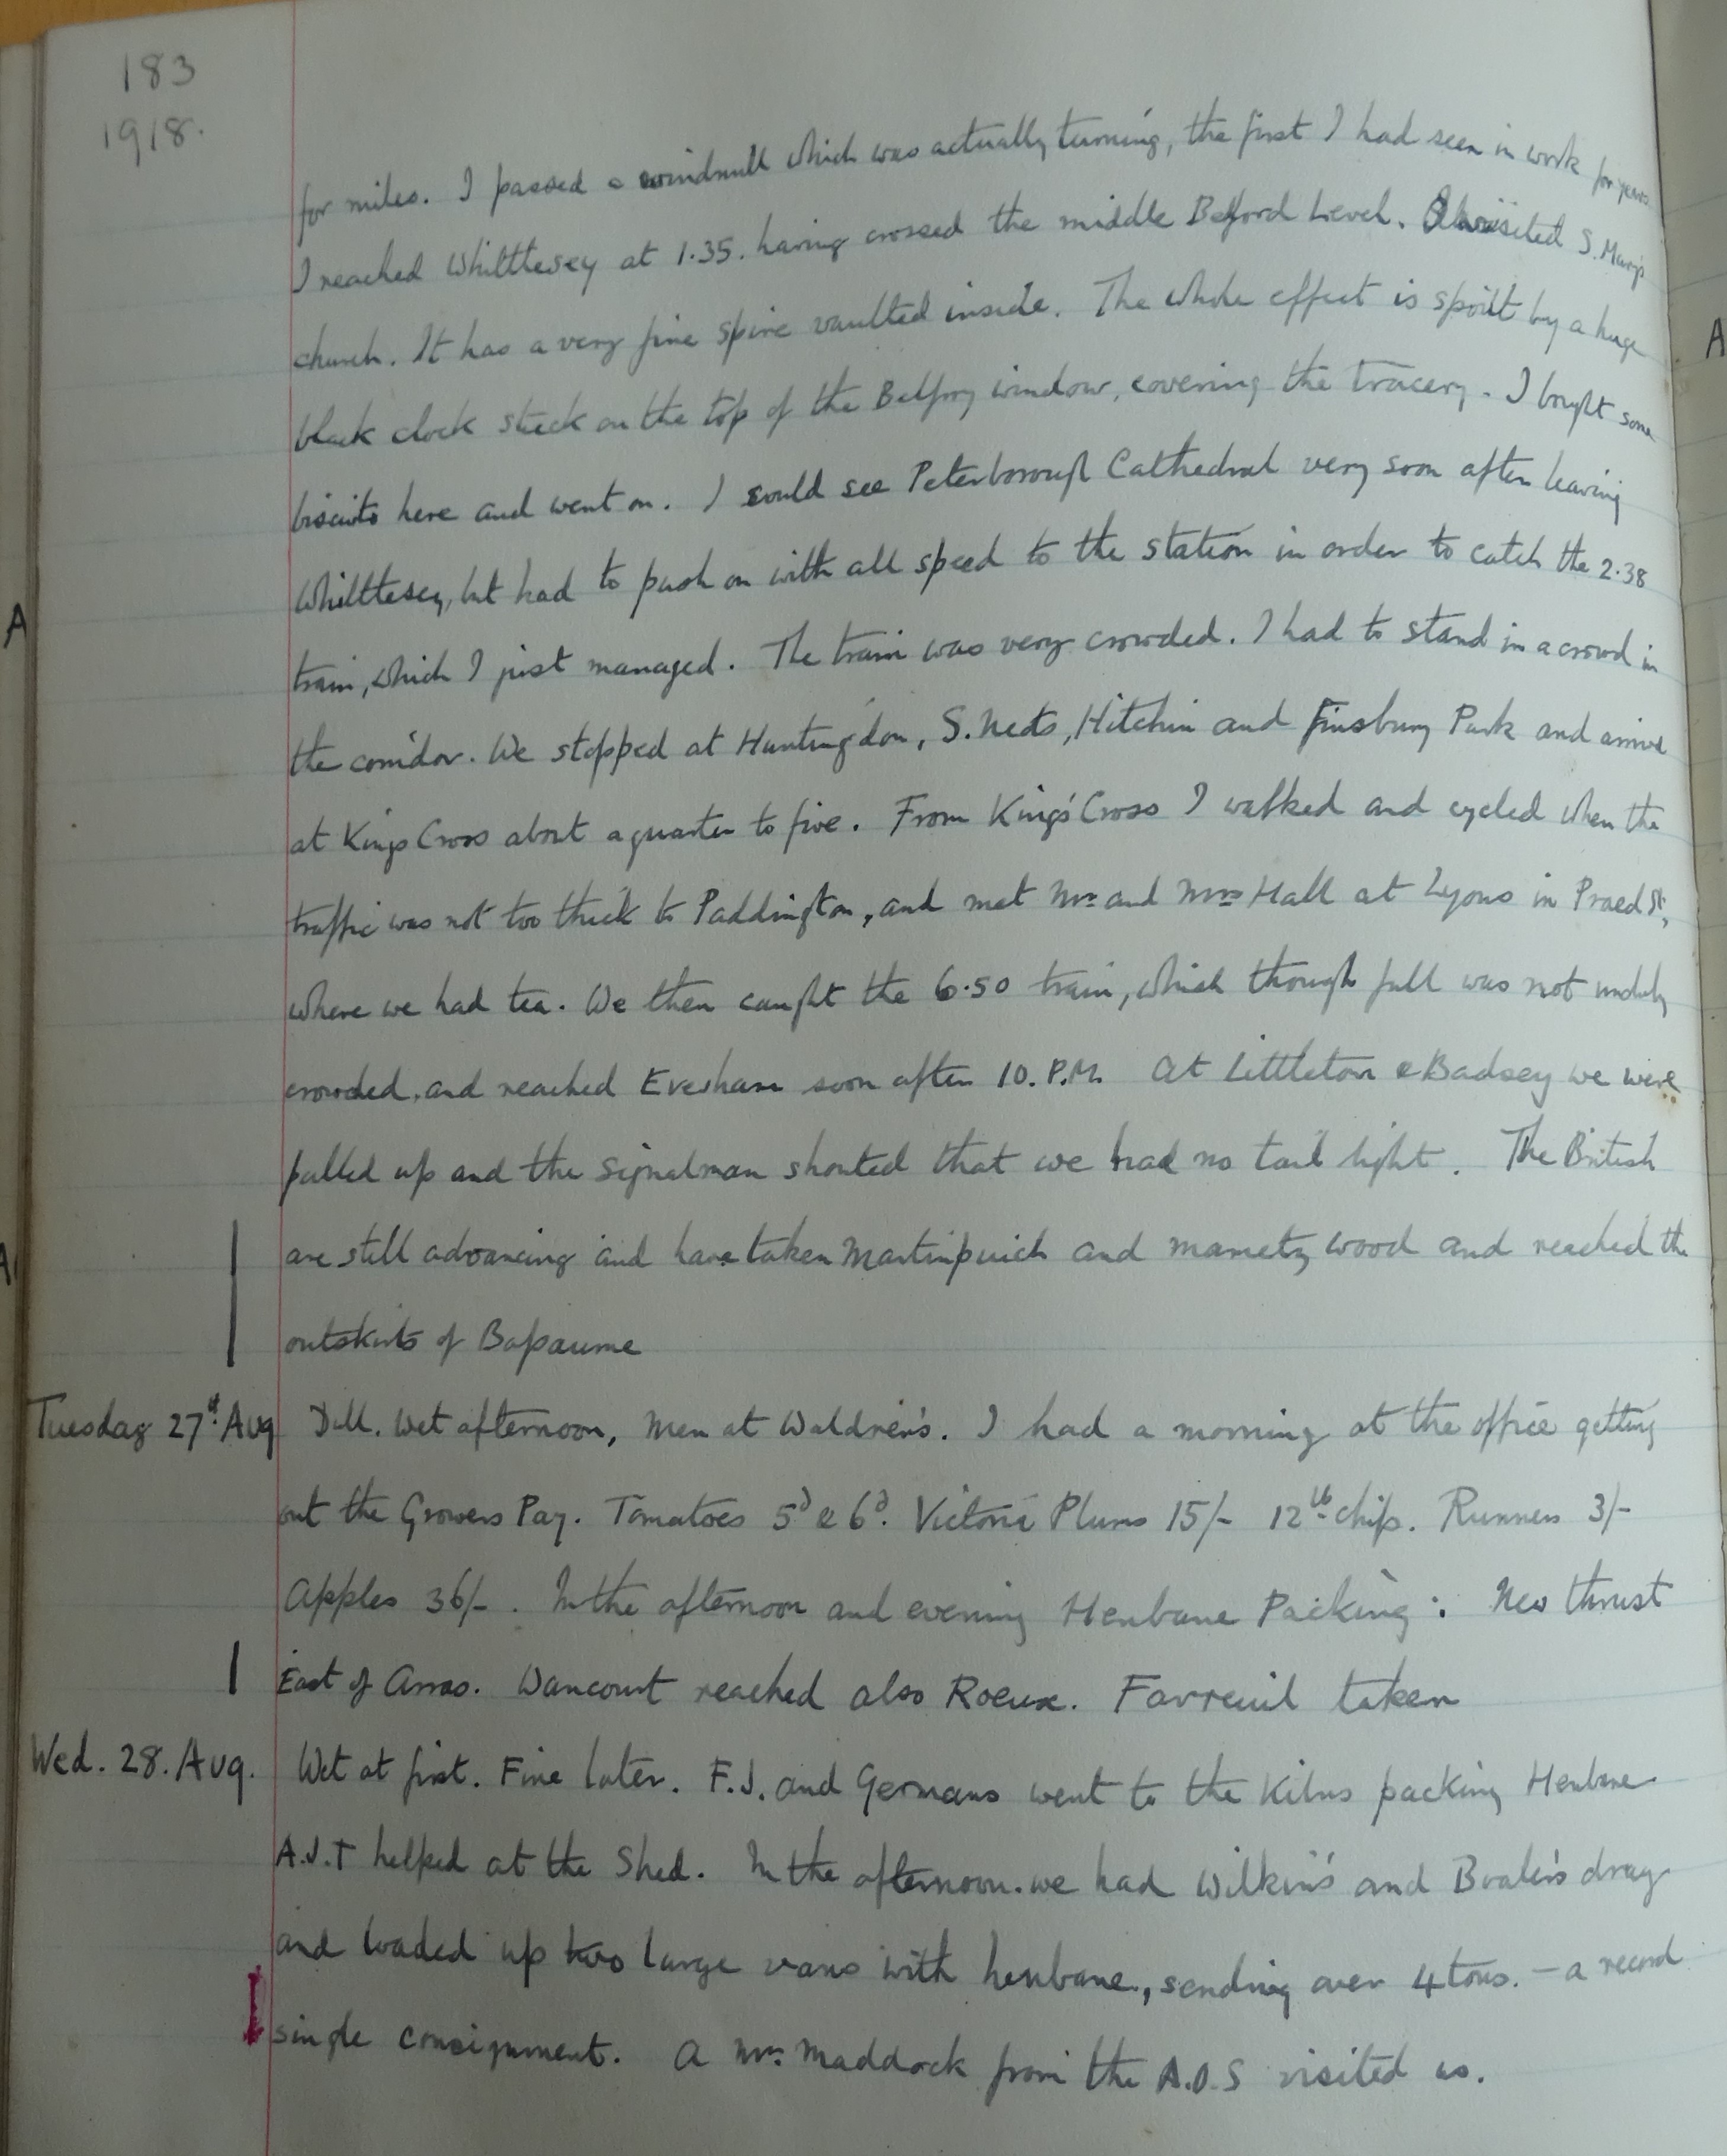 183
1918.
for miles. I passed a windmill which was actually turning, the first I had seen in work for years.
I reached Whittlesey at 1.35. having crossed the middle Bedford Level. I visited S. Mary's
church. It has a very fine spire vaulted inside. The whole effect is spoilt by a huge
black clock stuck on the top of the Belfry window, covering the tracery. I bought some
biscuits here and went on. I could see Peterborough Cathedral very soon after leaving
Whittlesey, but had to push on with all speed to the station in order to catch the 2.38
train, which I just managed. The train was very crowded. I had to stand in a crowd in
the corridor. We stopped at Huntingdon, S. Neots, Hitchin and Finsbury Park and arrived
at Kings Cross about a quarter to five. From King's Cross I walked and cycled when the
traffic was not too thick to Paddington, and met Mr and Mrs Hall at Lyons in Praed St,
where we had tea. We then caught the 6.50 train, which though full was not unduly
crowded, and reached Evesham soon after 10. P.M. At Littleton & Badsey we were
pulled up and the signalman shouted that we had no tail light. The British
are still advancing and have taken Martinpuich and Mametz wood and reached the
outskirts of Bapaume
Tuesday 27th Aug Dull. Wet afternoon, Men at Waldren's. I had a morning at the office getting
out the Growers Pay. Tomatoes 5d & 6d. Victoria Plums 15/- 12lb chip. Runners 3/-
Apples 36/-. In the afternoon and evening Henbane Packing: New thrust
East of Arras. Wancourt reached also Roeux. Favreuil taken
Wed. 28. Aug. Wet at first. Fine later. F.J. and Germans went to the Kilns packing Henbane
A.J.T helped at the Shed. In the afternoon. we had Wilkin's and dray
and loaded up two large vans with henbane, sending over 4 tons. - a record
single consignment. A Mr. Maddock from the A.O.S visited us.